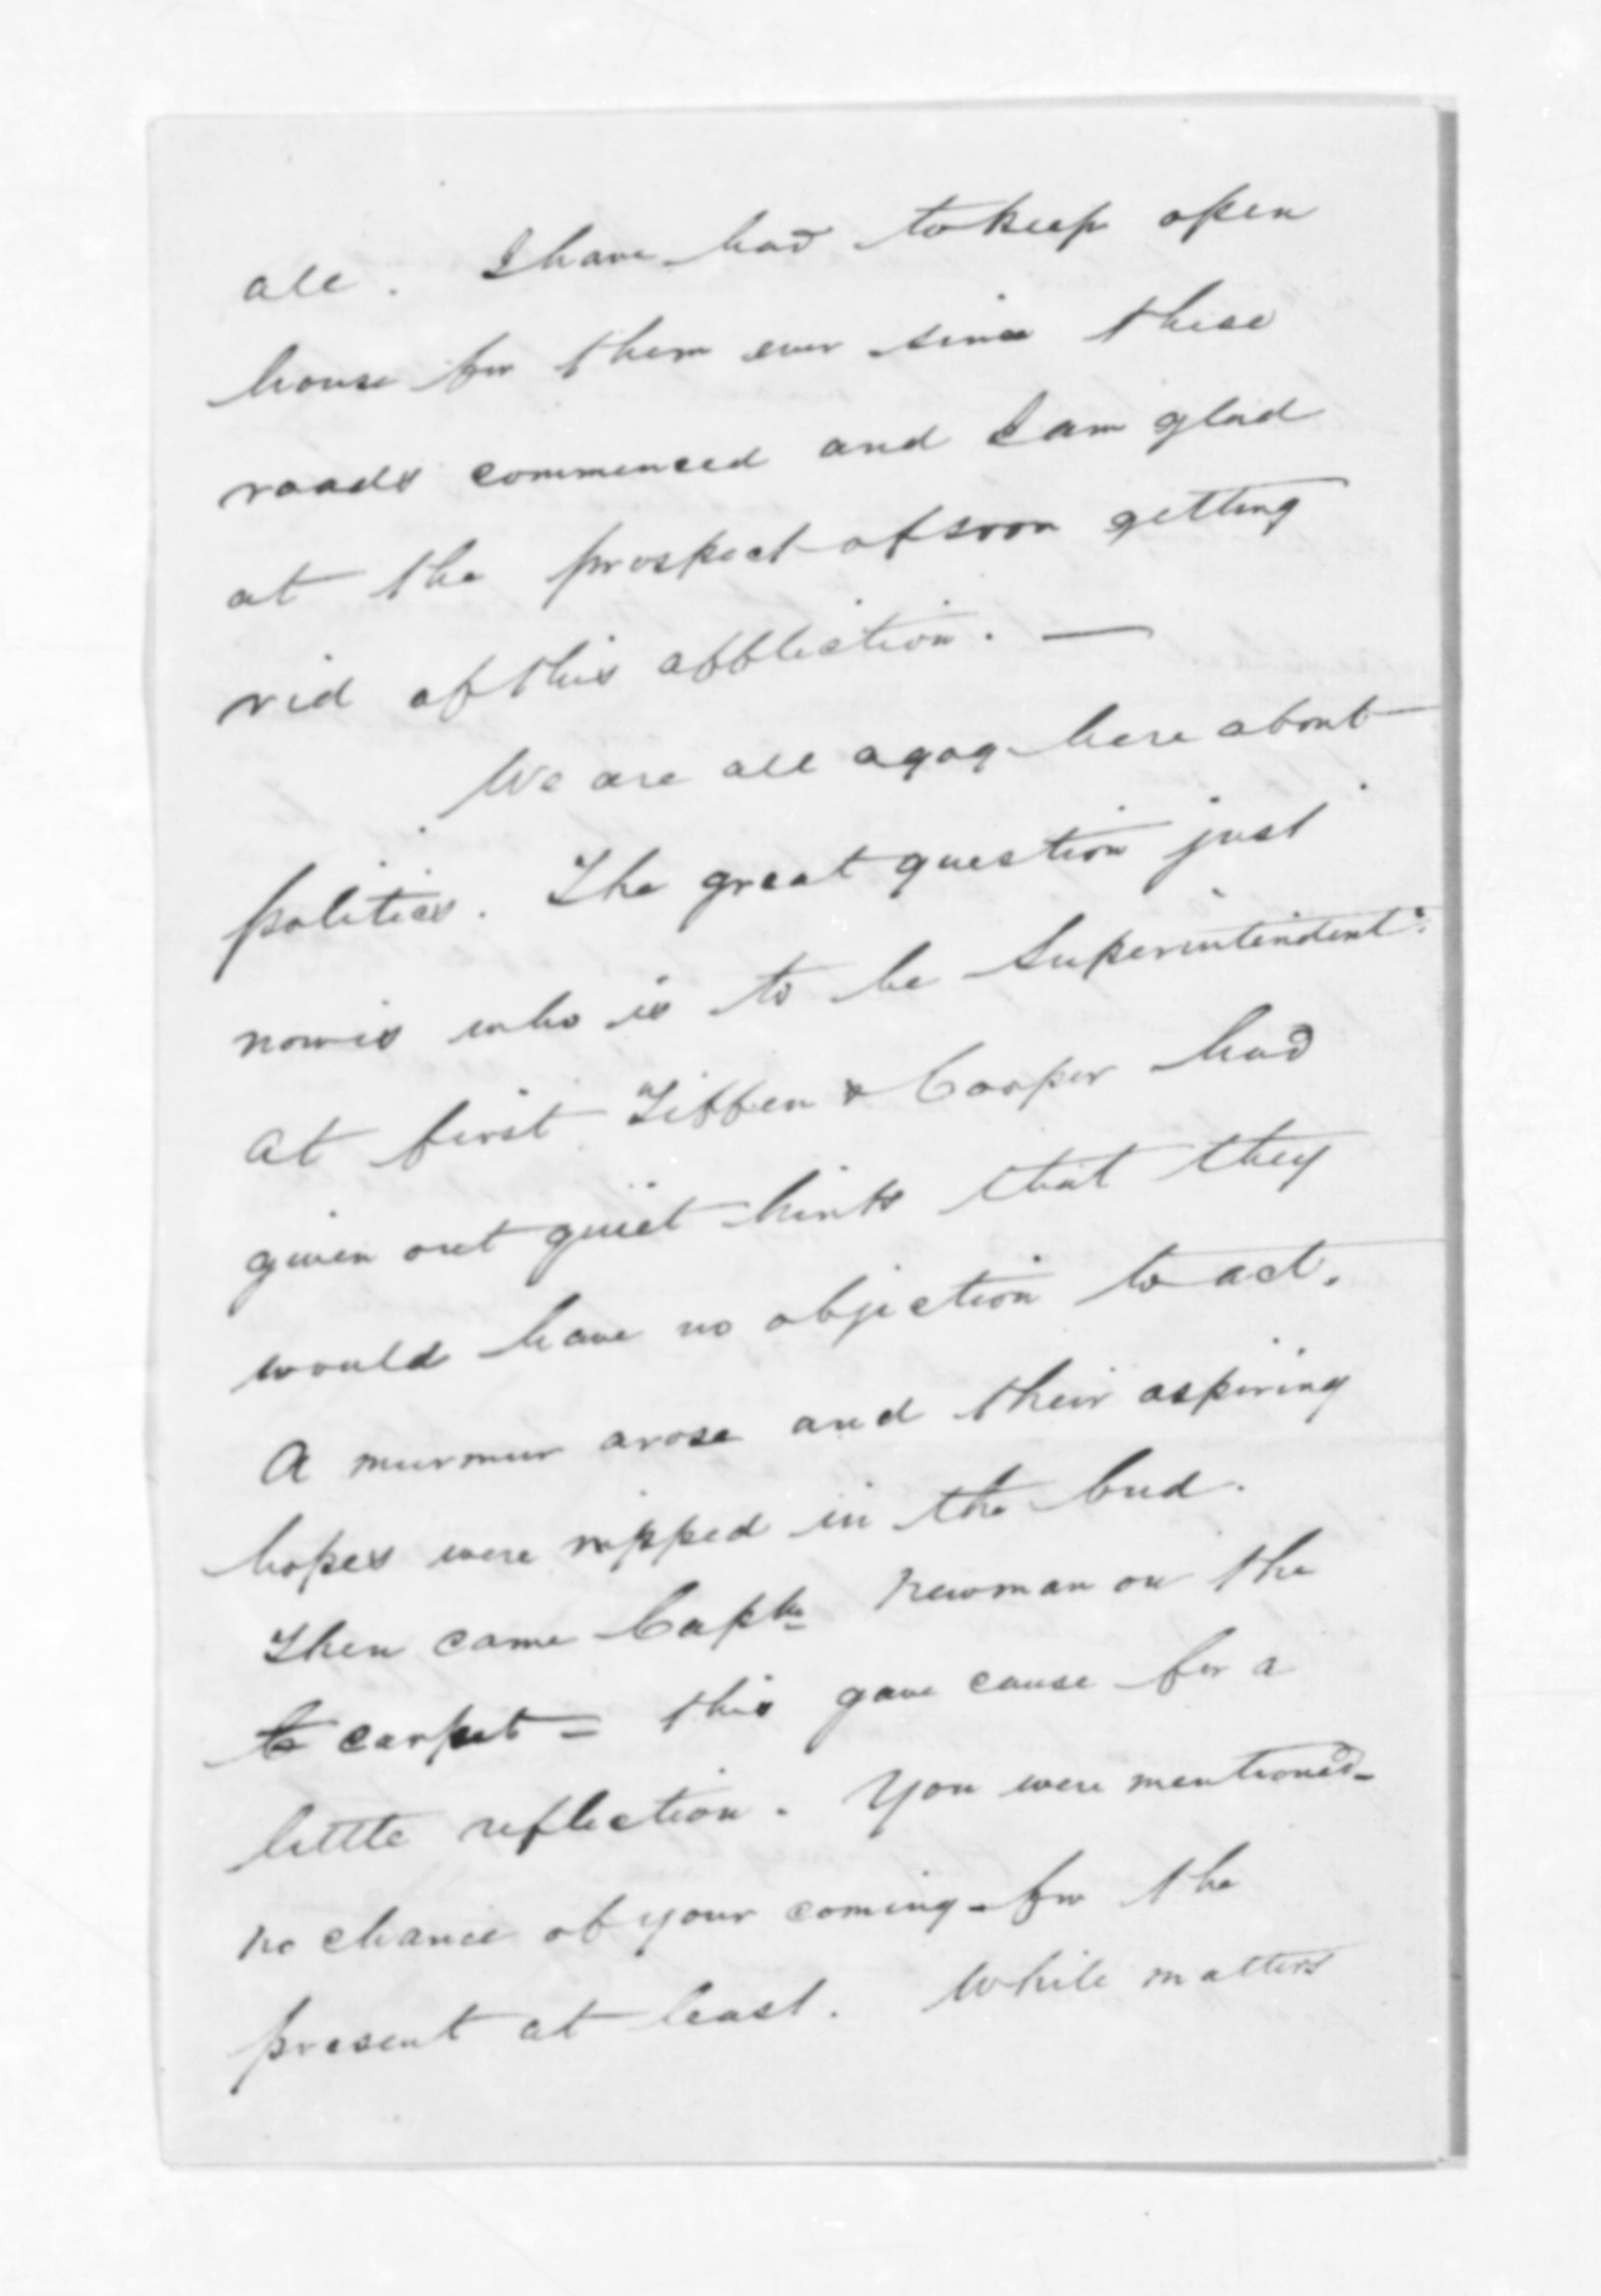 all. I have had to keep open
house for them ever since these
roads commenced and I am glad
at the prospect of soon getting
rid of this affliction. —
We are all agog here about
politics. The great question just
now is who is to be Superintendent.
At first Tiffen & Cooper had
given out quiet hints that they
would have no objection to act.
A murmur arose and their aspiring
hopes were nipped in the bud.
Then came Captn Newman on the
carpet = this gave cause for a
little reflection. You were mentioned -
no chance of your coming - for the
present at least. While matters